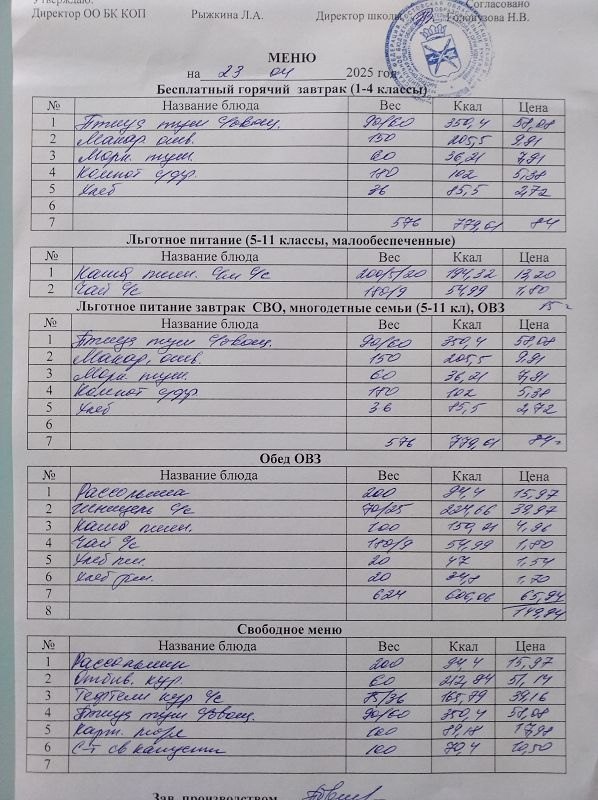 Утверждаю: Согласовано
Директор ОО БК КОП Рыжкина Л.А. Директор школы Голопузова Н.В.
МЕНЮ
на 23 04 2025 год
Бесплатный горячий завтрак (1-4 классы)
№ Название блюда Вес Ккал Цена
1 Птица туш с/овощ. 90/60 350,4 58,08
2 Макар. отв. 150 205,5 9,91
3 Морк. туш. 60 36,21 7,91
4 Компот с/фр. 180 102 5,38
5 Хлеб 36 85,5 2,72
6
7 576 779,61 84
Льготное питание (5-11 классы, малообеспеченные)
№ Название блюда Вес Ккал Цена
1 Каша пшен. с/м с/с 200/5/20 194,32 13,20
2 Чай с/с 180/9 54,99 1,80
15
Льготное питание завтрак СВО, многодетные семьи (5-11 кл), ОВЗ
№ Название блюда Вес Ккал Цена
1 Птица туш с/овощ. 90/60 350,4 58,08
2 Макар. отв. 150 205,5 9,91
3 Морк. туш. 60 36,21 7,91
4 Компот с/фр. 180 102 5,38
5 Хлеб 36 85,5 2,72
6
7 576 779,61 84
Обед ОВЗ
№ Название блюда Вес Ккал Цена
1 Рассольник 200 94,4 15,97
2 Шницель с/с 70/25 224,66 39,97
3 Каша пшен. 100 150,01 4,96
4 Чай с/с 180/9 54,99 1,80
5 Хлеб пш. 20 47 1,54
6 Хлеб рж. 20 34,8 1,70
7 624 606,06 65,94
8 149,94
Свободное меню
№ Название блюда Вес Ккал Цена
1 Рассольник 200 94,4 15,97
2 Отбив. кур. 60 212,84 51,14
3 Тефтели кур с/с 85/36 165,79 39,16
4 Птица туш с/овощ. 90/60 350,4 58,08
5 Карт. пюре 100 89,18 17,98
6 С-т св капусты 100 70,4 10,50
7
Зав. производством